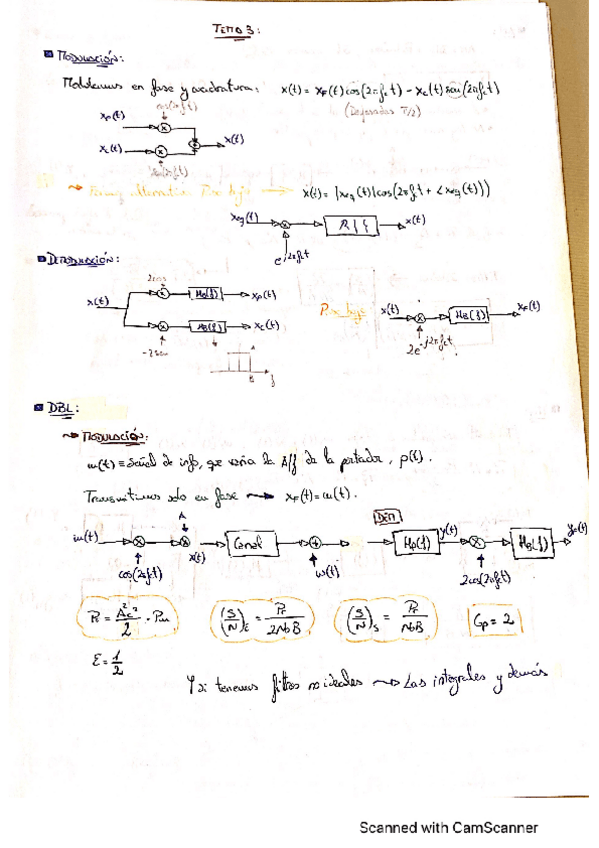 TEMA 3:
MODULACIÓN:
Moduleamos en fase y cuadratura: x(t) = xF(t)cos(2πfct) − xC(t)sen(2πfct)
cos(2πfct)
(Desfasadas π/2)
xF(t)
xC(t)
x(t)
Forma alternativa Paso bajo → x(t) = |xeq(t)|cos(2πfct + ∠xeq(t))
xeq(t) x(t)
e^j2πfct
DEMODULACIÓN:
2cos
HB(f) xF(t)
x(t)
HB(f) xC(t)
-2sen
B f
Paso bajo x(t) HB(f) xF(t)
2e^-j2πfct
DBL:
MODULACIÓN:
m(t) ≡ Señal de info, que varía la A/f de la portada, p(t).
Transmitimos solo en fase → xF(t) = m(t).
DEM
m(t) x(t) Canal HB(f) y(t) HB(f) yF(t)
cos(2πfct) w(t) 2cos(2πfct)
PR = Ac²/2 · Pm (S/N)E = Pr/2NoB (S/N)S = Pr/NoB Gp = 2
E = 1/2
Y si tenemos filtros no ideales → Las integrales y demás
Scanned with CamScanner